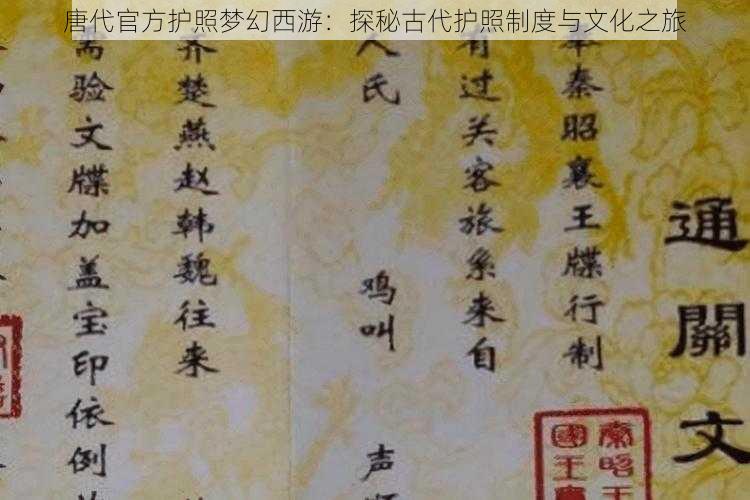 唐代官方护照梦幻西游：探秘古代护照制度与文化之旅
通關文
奉秦昭襄王牒行制
有过关客旅系来自
人氏 鸡叫 声
齐楚燕赵韩魏往来
需验文牒加盖宝印依例
秦昭王
國王